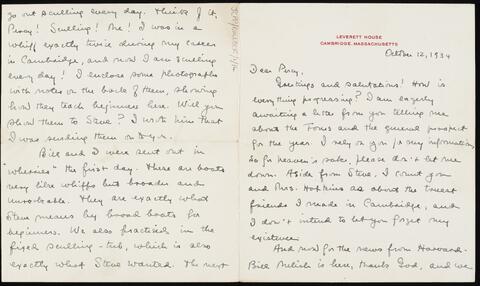 LEVERETT HOUSE
CAMBRIDGE, MASSACHUSETTS
October 12, 1934
Dear Percy,
Greetings and salutations! How is
everything progressing? I am eagerly
awaiting a letter from you telling me
about the Tours and the general prospect
for the year. I rely on you for my information,
so for heaven's sake, please don't let me
down. Aside from Steve, I count you
and Mrs. Hopkins as about the truest
friends I made in Cambridge, and
I don't intend to let you forget my
existence.
And now for the news from Harvard.
Bill is here, thank God, and we
go out sculling every day. Think of it,
Percy! Sculling! Me! I was in a
whiff exactly twice during my career
in Cambridge, and now I am sculling
every day! I enclose some photographs
with notes on the back of them, showing
how they teach beginners here. Will you
show them to Steve? I wrote him that
I was sending them on to you.
Bill and I were sent out in
"wherries" the first day. These are boats
very like whiffs but broader and
unsinkable. They are exactly what
Steve means by broad boats for
beginners. We also practised in the
fixed sculling-tub, which is also
exactly what Steve wanted. The next